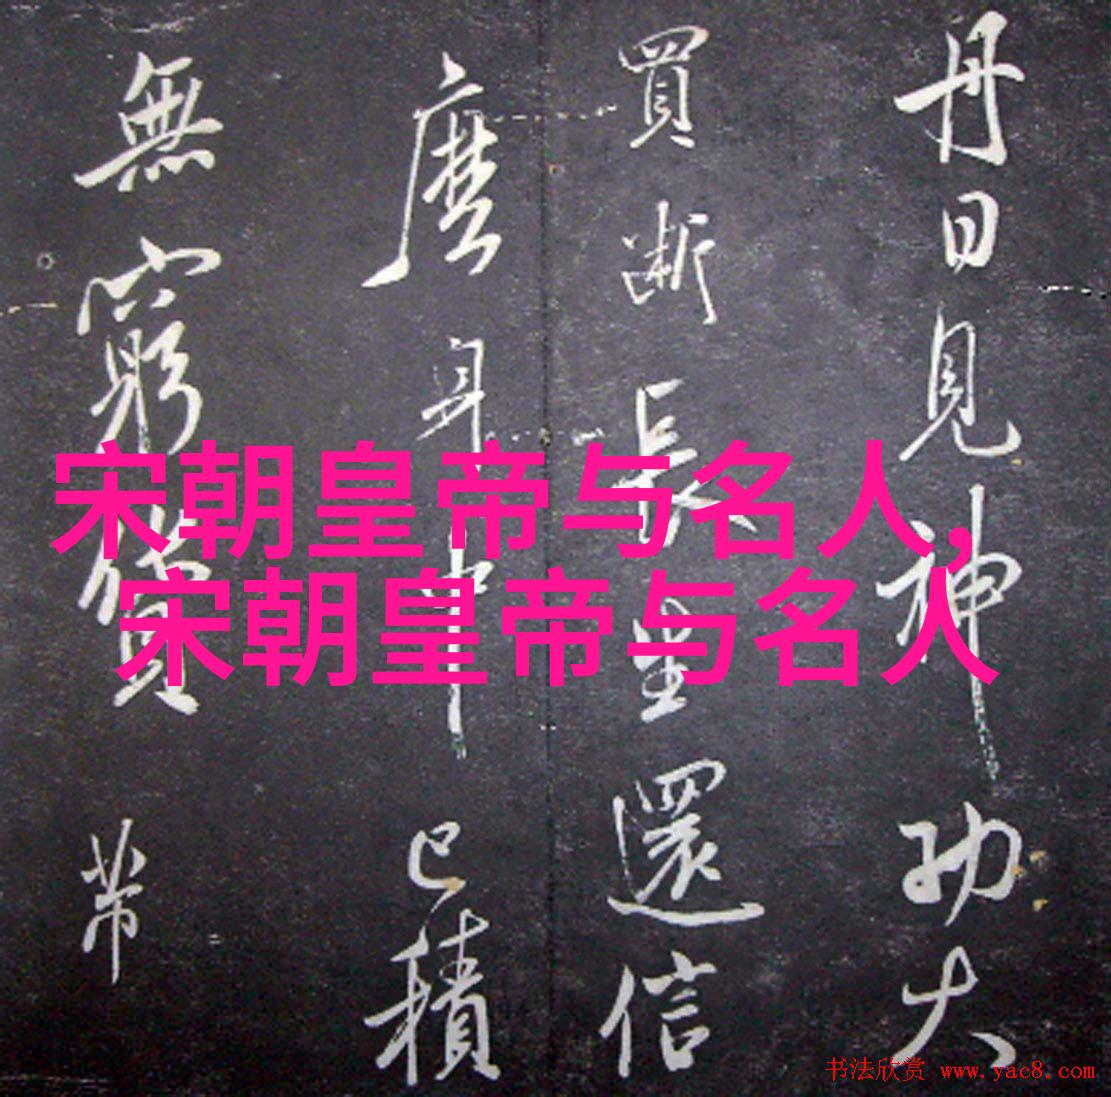 丹日見神功大
買斷長生還信
麼身中已積
無窮
宋朝皇帝与名人,
宋朝皇帝与名人
书法欣赏 www.yac8.com